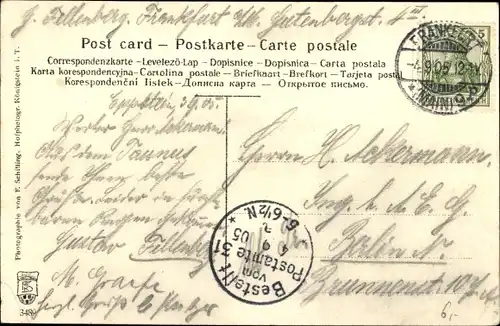 G. Fellenberg, Frankfurt a/M. Gutenbergstr. 4 III
Post card – Postkarte – Carte postale
Correspondenzkarte - Levelező-Lap - Dopisnice - Dopisnica - Carta postala
Karta korespondencyjna - Cartolina postale - Briefkaart - Brefkort - Tarjeta postal
Korespondenční lístek - Дописна карта — Открытое письмо.
FRANKFURT
-4.9.05.12-1N
(MAIN) 9
5
Eppstein 3.9.05.
Werter Herr Ackermann!
Aus dem Taunus
sende Ihnen beste
Grüße, leider in
Regen
Gustav Fellenberg
M. Graefe
Herrn H. Ackermann.
Ing. d. A. E. G.
Berlin N.
Brunnenstr. 107
Bestellt
vom
Postamte 31
4 9 05
6-6½N.
Photographie von F. Schilling, Hofphotogr. Königstein i. T.
348
6,-